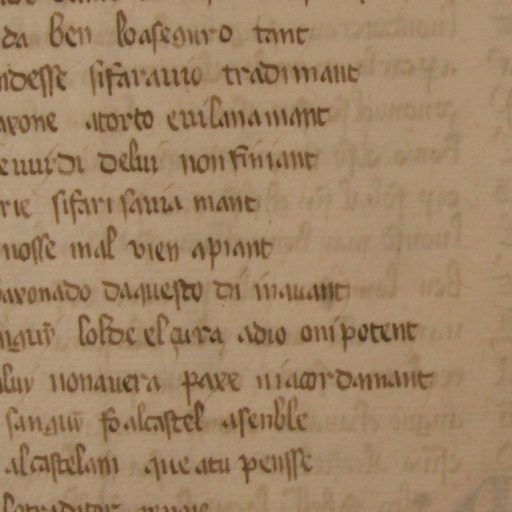 da ben loaseguro tant
ndesse sifarauio tradimant
axone atorto euilanamant
euurdi delui non finiant
rie sifarisauia mant
nosse mal vien apiant
axonado daquesto dn inauant
lofde elcura adio onipotent
nonauera paxe niacordamant
sangui foalcastel asenble
alcastelani que atu pensse